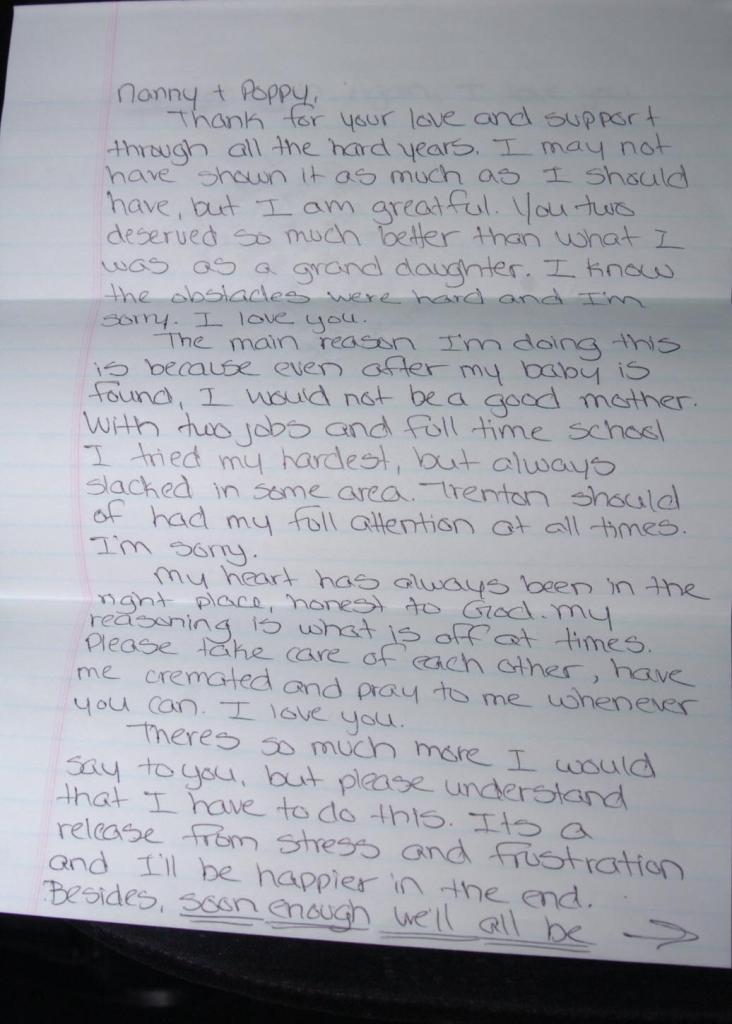 Nanny + Poppy,
Thank for your love and support
through all the hard years. I may not
have shown it as much as I should
have, but I am greatful. You two
deserved so much better than what I
was as a grand daughter. I know
the obstacles were hard and I'm
sorry. I love you.
The main reason I'm doing this
is because even after my baby is
found, I would not be a good mother.
With two jobs and full time school
I tried my hardest, but always
slacked in some area. Trenton should
of had my full attention at all times.
I'm sorry.
My heart has always been in the
right place, honest to God. My
reasoning is what is off at times.
Please take care of each other, have
me cremated and pray to me whenever
you can. I love you.
Theres so much more I would
say to you, but please understand
that I have to do this. Its a
release from stress and frustration
and I'll be happier in the end.
Besides, soon enough we'll all be →